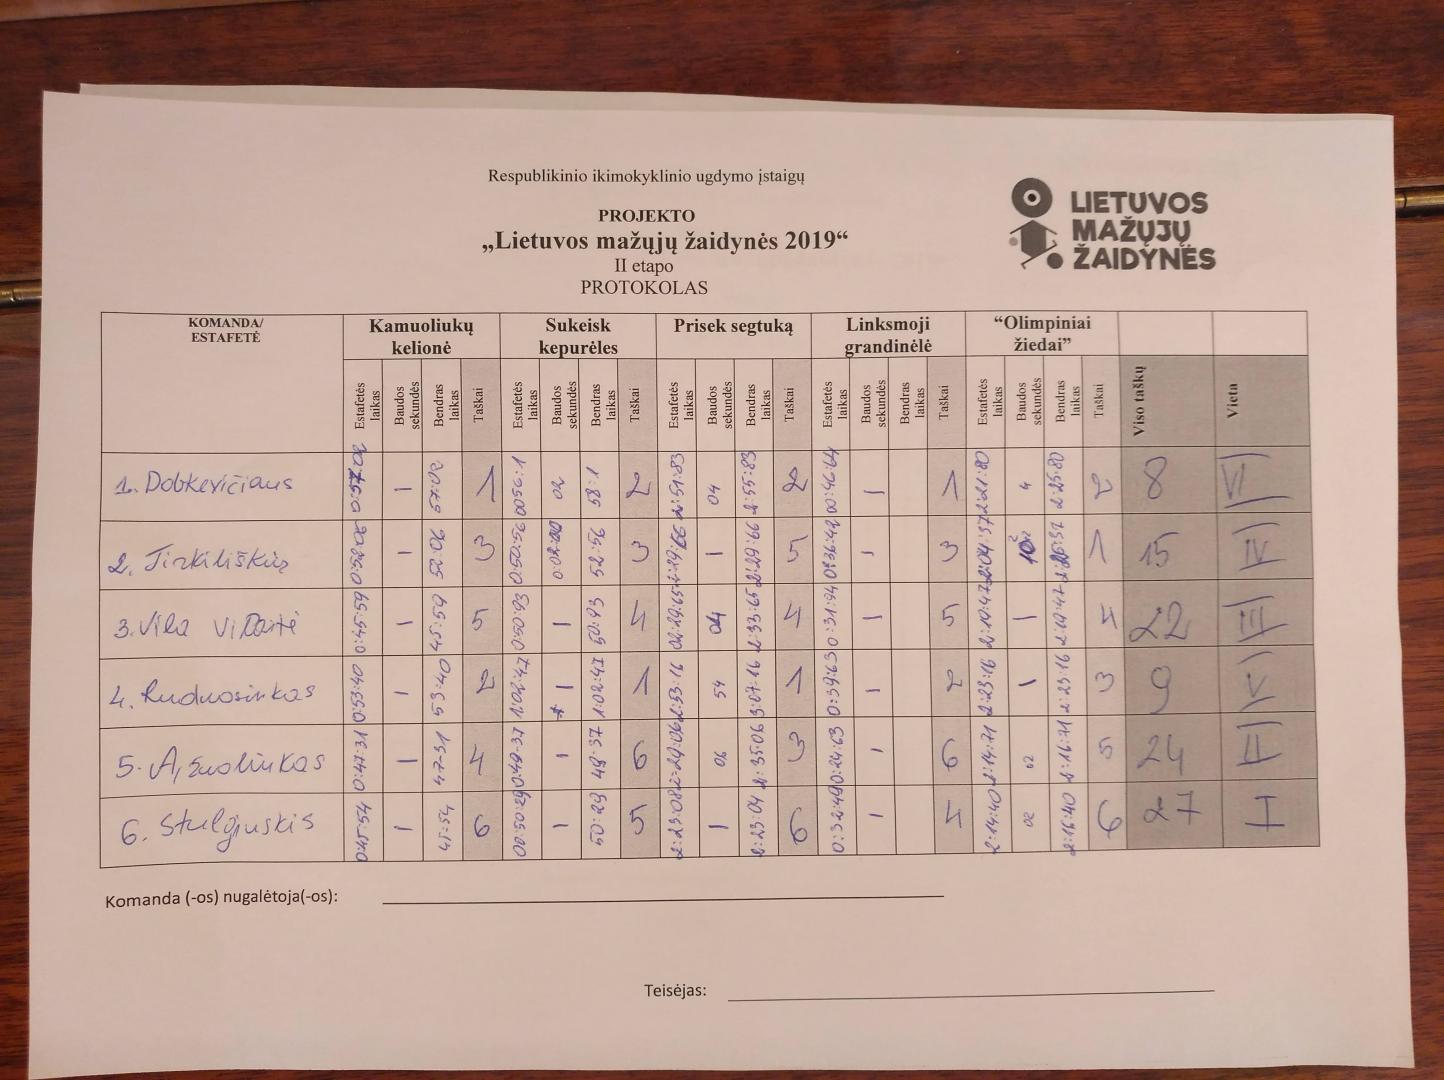 Respublikinio ikimokyklinio ugdymo įstaigų
PROJEKTO
„Lietuvos mažųjų žaidynės 2019“
II etapo
PROTOKOLAS
LIETUVOS
MAŽŲJŲ
ŽAIDYNĖS
KOMANDA/ ESTAFETĖ Kamuoliukų kelionė Sukeisk kepurėles Prisek segtuką Linksmoji grandinėlė “Olimpiniai žiedai”
Estafetės laikas Baudos sekundės Bendras laikas Taškai Estafetės laikas Baudos sekundės Bendras laikas Taškai Estafetės laikas Baudos sekundės Bendras laikas Taškai Estafetės laikas Baudos sekundės Bendras laikas Taškai Estafetės laikas Baudos sekundės Bendras laikas Taškai Viso taškų Vieta
1. Dobkevičiaus 0:57:02 – 57:02 1 0056:1 02 58:1 2 2:51:83 04 2:55:83 2 00:46:64 – 1 2:21:80 4 2:25:80 2 8 VI
2. – 52:02 3 0:50:56 0:02:00 52:56 3 2:29:66 – 2:29:66 5 0:36:42 – 3 1 15 IV
3. Vila 0:45:59 – 45:59 5 0:50:93 – 50:93 4 02:29:65 04 2:33:65 4 0:31:94 – 5 2:19:47 – 2:19:47 4 22 III
4. 0:53:40 – 53:40 2 1:02:47 – 1:02:47 1 2:53:16 54 3:07:16 1 0:39:63 – 2 2:23:16 – 2:23:16 3 9 V
5. Ąžuoliukas 0:47:31 – 47:31 4 0:49:37 – 49:37 6 2:29:06 06 2:35:06 3 0:24:63 – 6 2:14:71 02 2:16:71 5 24 II
6. Stulgiuskis 0:45:54 – 45:54 6 00:50:29 – 50:29 5 – 6 0:32:49 – 4 2:14:40 02 2:16:40 6 27 I
Komanda (-os) nugalėtoja(-os):
Teisėjas: